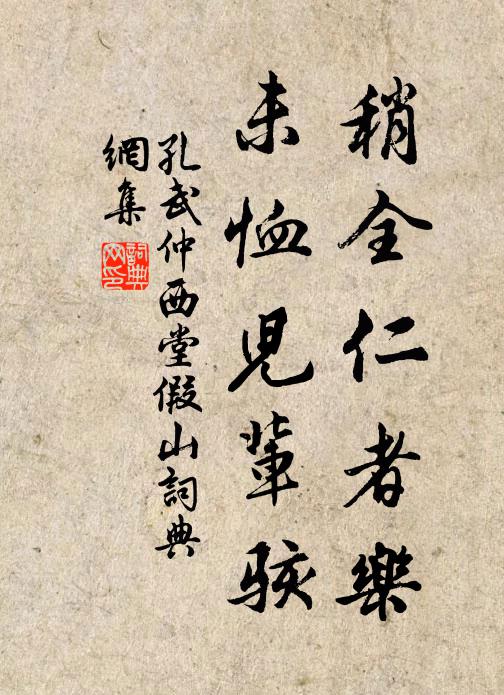 稍全仁者樂
未恤兒輩駭
孔武仲西堂假山詞典
網集
詞典
网印